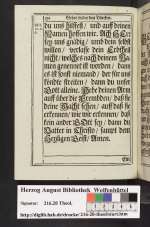 du uns hilffest / und auff deinen
Namen hoffen wir. Ach HErr
sey uns gnädig / und dein selbst
willen / verlasse dein Erbtheil
nicht / welches nach deinem Na-
men genennet ist worden / dann
es ist sonst niemand / der für uns
könte streiten / dann du unser
Gott alleine. Hebe deinen Arm
auff über die Frembden / daß sie
deine Macht sehen / auff daß sie
erkennen / wie wir erkennen / daß
kein ander GOtt sey / dann du
Vatter in Christo / sampt dem
Heyligen Geist / Amen.
Herzog August Bibliothek Wolfenbüttel
Signatur: 216.28 Theol.
http://diglib.hab.de/drucke/216-28-theol/start.htm